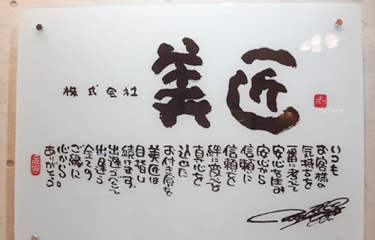 株式会社
美匠
いつも
お客様の
気持ちを
一番に考えて
安心を生み
安心から
信頼に
信頼を
絆に変える
真心を
込めて
お付き合いを
美匠は
目指し
続けます
出逢うべくして
出逢えた
全ての
ご縁に
心から。
ありがとう